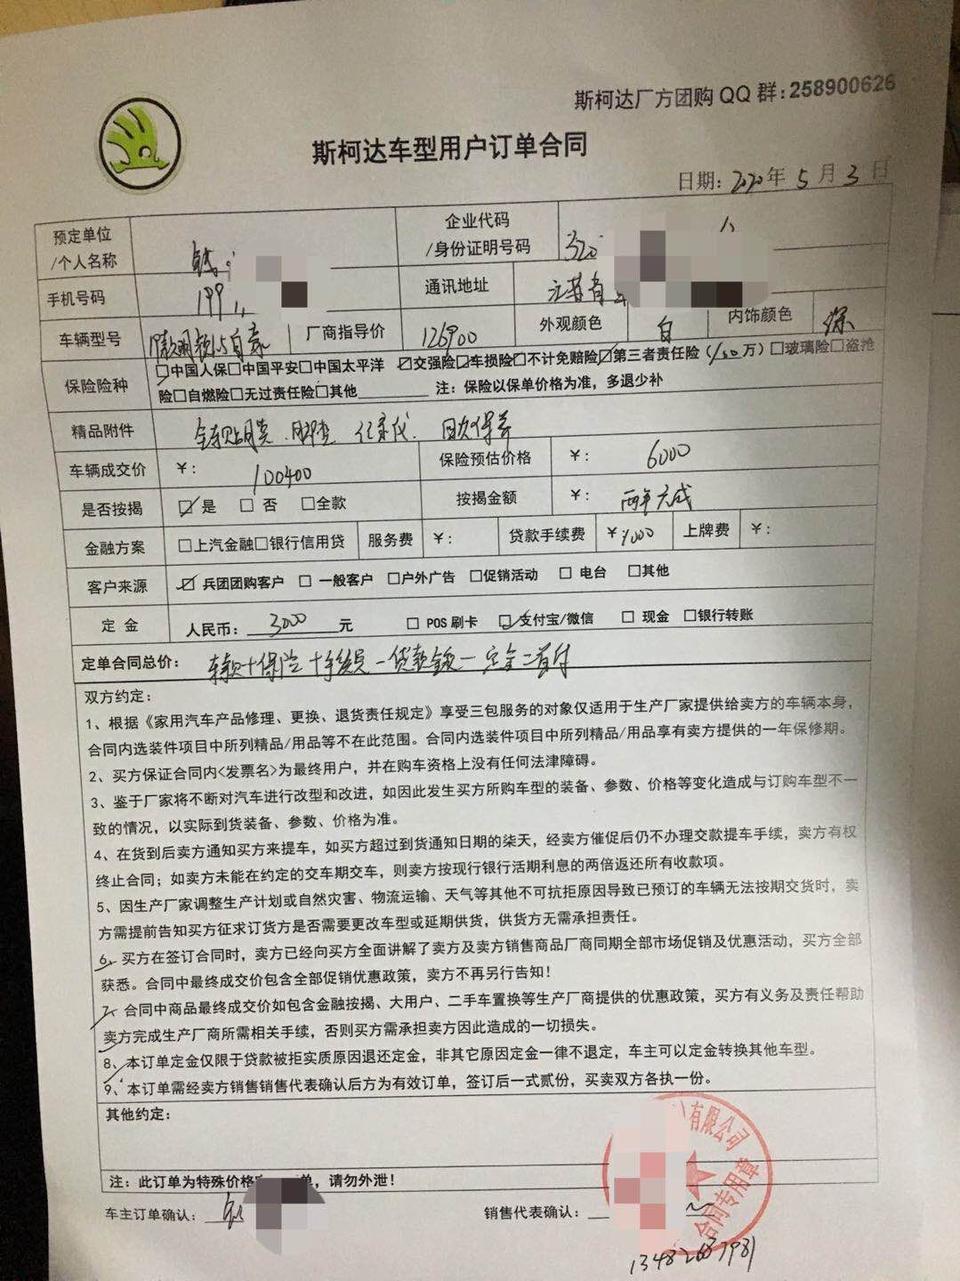 斯柯达厂方团购QQ群:258900626
斯柯达车型用户订单合同
日期: 2020年 5 月 3 日
预定单位/个人名称 钱 企业代码/身份证明号码 320
手机号码 199 通讯地址 江苏省
车辆型号 1.5自 厂商指导价 126900 外观颜色 白 内饰颜色
保险险种 □中国人保□中国平安□中国太平洋 ☑交强险☑车损险☑不计免赔险☑第三者责任险(100万)□玻璃险□盗抢
险□自燃险□无过责任险□其他________ 注:保险以保单价格为准,多退少补
精品附件 全车贴膜 脚垫 行车记录仪
车辆成交价 ¥: 100400 保险预估价格 ¥: 6000
是否按揭 ☑是 □ 否 □全款 按揭金额 ¥:
金融方案 □上汽金融□银行信用贷 服务费 ¥: 贷款手续费 ¥ 上牌费 ¥:
客户来源 ☑ 兵团团购客户 □ 一般客户 □户外广告 □促销活动 □ 电台 □其他
定 金 人民币: 3000 元 □ POS刷卡 ☑支付宝/微信 □ 现金 □银行转账
定单合同总价: 车款+保险+手续费-贷款金额-定金=首付
双方约定:
1、根据《家用汽车产品修理、更换、退货责任规定》享受三包服务的对象仅适用于生产厂家提供给卖方的车辆本身,
合同内选装件项目中所列精品/用品等不在此范围。合同内选装件项目中所列精品/用品享有卖方提供的一年保修期。
2、买方保证合同内<发票名>为最终用户,并在购车资格上没有任何法律障碍。
3、鉴于厂家将不断对汽车进行改型和改进,如因此发生买方所购车型的装备、参数、价格等变化造成与订购车型不一
致的情况,以实际到货装备、参数、价格为准。
4、在货到后卖方通知买方来提车,如买方超过到货通知日期的柒天,经卖方催促后仍不办理交款提车手续,卖方有权
终止合同;如卖方未能在约定的交车期交车,则卖方按现行银行活期利息的两倍返还所有收款项。
5、因生产厂家调整生产计划或自然灾害、物流运输、天气等其他不可抗拒原因导致已预订的车辆无法按期交货时,卖
方需提前告知买方征求订货方是否需要更改车型或延期供货,供货方无需承担责任。
6、买方在签订合同时,卖方已经向买方全面讲解了卖方及卖方销售商品厂商同期全部市场促销及优惠活动,买方全部
获悉。合同中最终成交价包含全部促销优惠政策,卖方不再另行告知!
7、合同中商品最终成交价如包含金融按揭、大用户、二手车置换等生产厂商提供的优惠政策,买方有义务及责任帮助
卖方完成生产厂商所需相关手续,否则买方需承担卖方因此造成的一切损失。
8、本订单定金仅限于贷款被拒实质原因退还定金,非其它原因定金一律不退定,车主可以定金转换其他车型。
9、本订单需经卖方销售销售代表确认后方为有效订单,签订后一式贰份,买卖双方各执一份。
其他约定:
有限公司
合同专用章
注:此订单为特殊价格 单,请勿外泄!
车主订单确认: 钱 销售代表确认:
13482687981